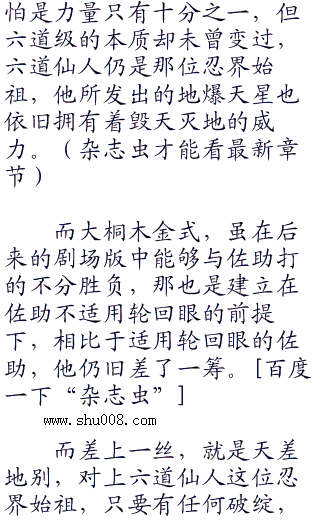 怕是力量只有十分之一，但
六道级的本质却未曾变过，
六道仙人仍是那位忍界始
祖，他所发出的地爆天星也
依旧拥有着毁天灭地的威
力。（杂志虫才能看最新章
节）
而大桐木金式，虽在后
来的剧场版中能够与佐助打
的不分胜负，那也是建立在
佐助不适用轮回眼的前提
下，相比于适用轮回眼的佐
助，他仍旧差了一筹。[百度
一下“杂志虫”]
www.shu008.com
而差上一丝，就是天差
地别，对上六道仙人这位忍
界始祖，只要有任何破绽，